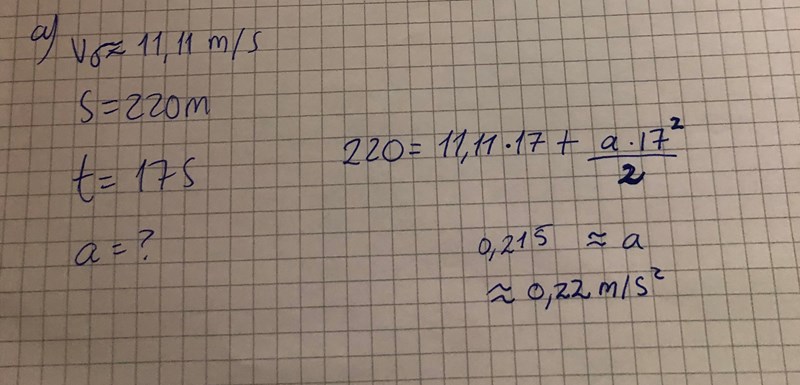 a) v₀≈ 11,11 m/s
S=220m
t= 17s
a=?
220= 11,11·17 + a·17²/2
0,215 ≈ a
≈ 0,22 m/s²